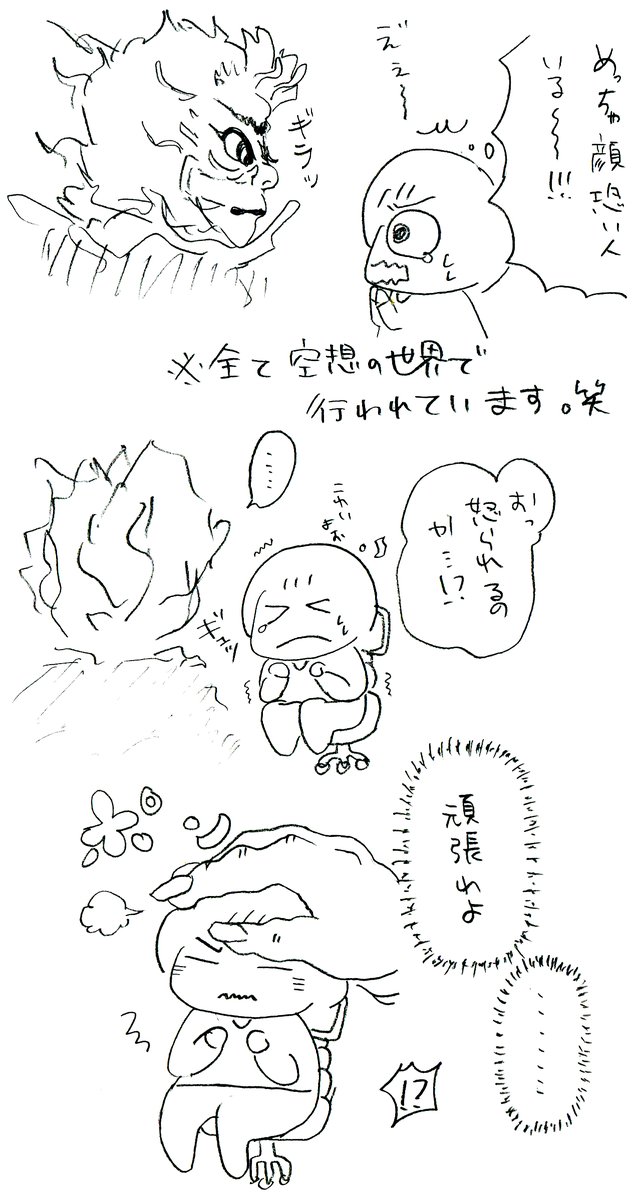 めっちゃ顔恐い人
いる〜〜!!!
ギラッ
※全て空想の世界で
行われています。笑
おっ
怒られるの
か…!?
……
こわい
ギャッ
頑張れよ
………
!?